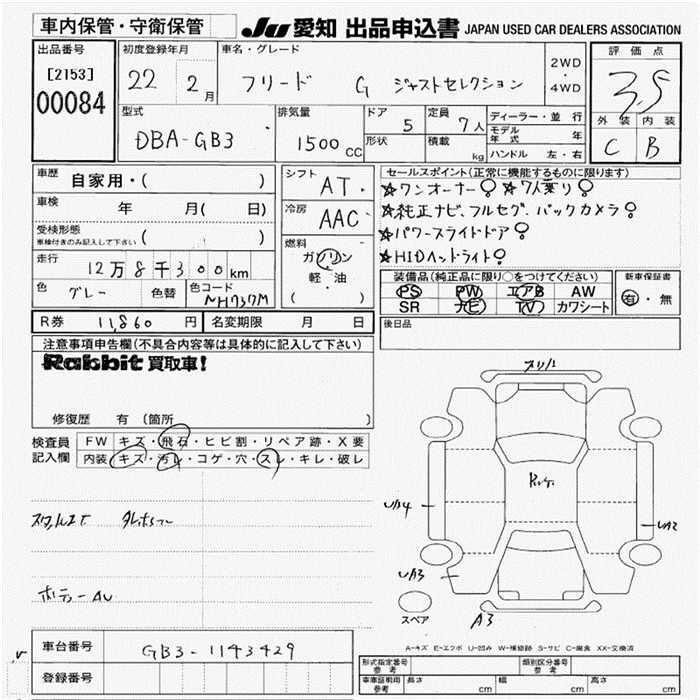 車内保管・守衛保管
Ju 愛知 出品申込書 JAPAN USED CAR DEALERS ASSOCIATION
出品番号
[2153]
00084
初度登録年月
22 2月
車名・グレード
フリード G ジャストセレクション
2WD
・
4WD
評価点
3.5
外装 内装
C B
型式
DBA-GB3
排気量
1500 CC
ドア
5
定員
7人
形状
積載
kg
ディーラー・並行
モデル年式 年
ハンドル 左・右
車歴 自家用・( )
車検 年 月( 日)
受検形態
車検付きのみ記入して下さい ( )
走行 12万8千300km
色 グレー 色替 色コード NH737M
シフト AT
冷房 AAC
燃料
ガソリン
軽・油
( )
セールスポイント(正常に機能するものに限ります)
☆ワンオーナー ☆7人乗り
☆純正ナビ、フルセグ、バックカメラ
☆パワースライドドア
☆HIDヘッドライト
装備品(純正品に限り○をつけてください)
PS PW エアB AW
SR ナビ TV カワシート
新車保証書
有・無
R券 11,860円 名変期限 月 日
後日品
注意事項申告欄(不具合内容等は具体的に記入して下さい)
Rabbit 買取車!
修復歴 有(箇所 )
検査員記入欄
FW キズ・飛石・ヒビ割・リペア跡・X要
内装 キズ・汚レ・コゲ・穴・スレ・キレ・破レ
スリハ
UA4
UA2
UA3
A3
スペア
ボデーAU
車台番号 GB3-1143429
登録番号
A-キズ E-エクボ U-凹み W-補修跡 S-サビ C-腐食 XX-交換済
形式指定番号 参考
類別区分番号 参考
車庫証明用 参考 長さ cm 幅 cm 高さ cm